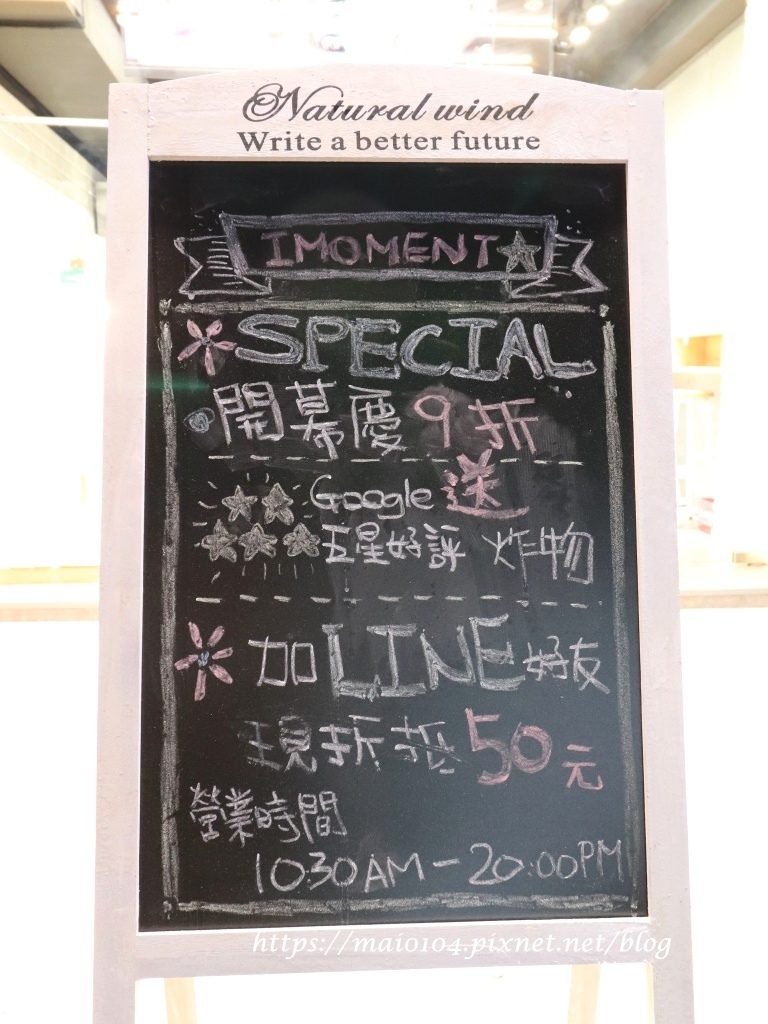 Natural wind
Write a better future
IMOMENT
SPECIAL
開幕慶9折
Google 送
五星好評 炸物
加LINE好友
現折抵50元
營業時間
10:30AM-20:00PM
https://maio104.pixnet.net/blog